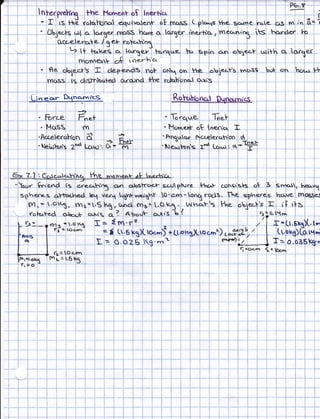 PG. 8
Interpreting the Moment of Inertia
• I is the rotational equivalent of mass (plays the same role as m in a =
• Objects w/ a larger mass have a larger inertia, meaning its harder to
accelerate / get rotating
↳ It takes a larger torque to spin an object with a larger
moment of inertia
• An object's I depends not only on the object's mass but on how th
mass is distributed around the rotational axis
Linear Dynamics
Rotational Dynamics
• Force Fnet
• Torque Tnet
• Mass m
• Moment of Inertia I
• Acceleration a
• Angular Acceleration α
• Newton's 2nd Law: a = Fnet/m
• Newton's 2nd Law: α = Tnet/I
Ex 7.7: Calculating the moment of inertia
• Your friend is creating an abstract sculpture that consists of 3 small, heavy
spheres attached by very lightweight 10-cm-long rods. The spheres have masses
m₁ = 1.0kg, m₂ = 1.5kg, and m₃ = 1.0kg. What's the object's I if its
rotated about axis a? About axis b?
m₃ = 1.0kg
r₃ = 10cm
I = Σ m·r²
= (1.5kg)(10cm)² + (1.0kg)(10cm²)
I = 0.025 kg·m²
r₂ = 10cm
m₂ = 1.5kg
r₁ = 0
r₃ = 0.14m
I = (1.5kg)(.1m
(1.0kg)(0.14m
I = 0.035kg·